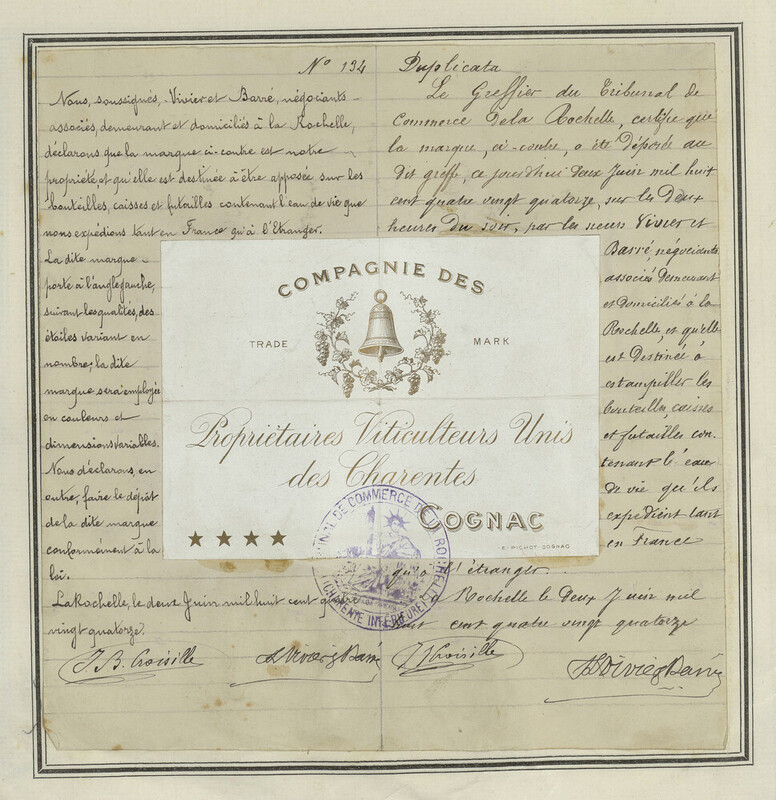 Nº 134
Nous, soussignés, Vivier et Barré, négociants
associés, demeurant et domiciliés à la Rochelle,
déclarons que la marque ci-contre est notre
propriété, et qu'elle est destinée à être apposée sur les
bouteilles, caisses et futailles contenant l'eau de vie que
nous expédions tant en France qu'à l'Etranger.
La dite marque
porte à l'angle gauche,
suivant les qualités, des
étoiles variant en
nombre; la dite
marque sera employée
en couleurs et
dimensions variables.
Nous déclarons, en
outre, faire le dépôt
de la dite marque
conformément à la
loi.
La Rochelle, le deux Juin mil huit cent quatre
vingt quatorze.
J. B. Croisille
Vivier & Barré
Duplicata
Le Greffier du Tribunal de
Commerce de la Rochelle, certifie que
la marque, ci-contre, a été déposée au
dit greffe, ce jourd'hui deux Juin mil huit
cent quatre vingt quatorze, sur les deux
heures du soir, par les sieurs Vivier et
Barré, négociants
associés demeurant
et domiciliés à la
Rochelle, et qu'elle
est destinée à
estampiller les
bouteilles, caisses
et futailles con-
tenant l'eau
de vie qu'ils
expédient tant
en France
qu'à l'étranger
Rochelle le deux Juin mil
huit cent quatre vingt quatorze
Croisille
Vivier & Barré
COMPAGNIE DES
TRADE MARK
Propriétaires Viticulteurs Unis
des Charentes
COGNAC
E. PICHOT-COGNAC
TRIBUNAL DE COMMERCE DE LA ROCHELLE
(CHARENTE INFÉRIEURE)